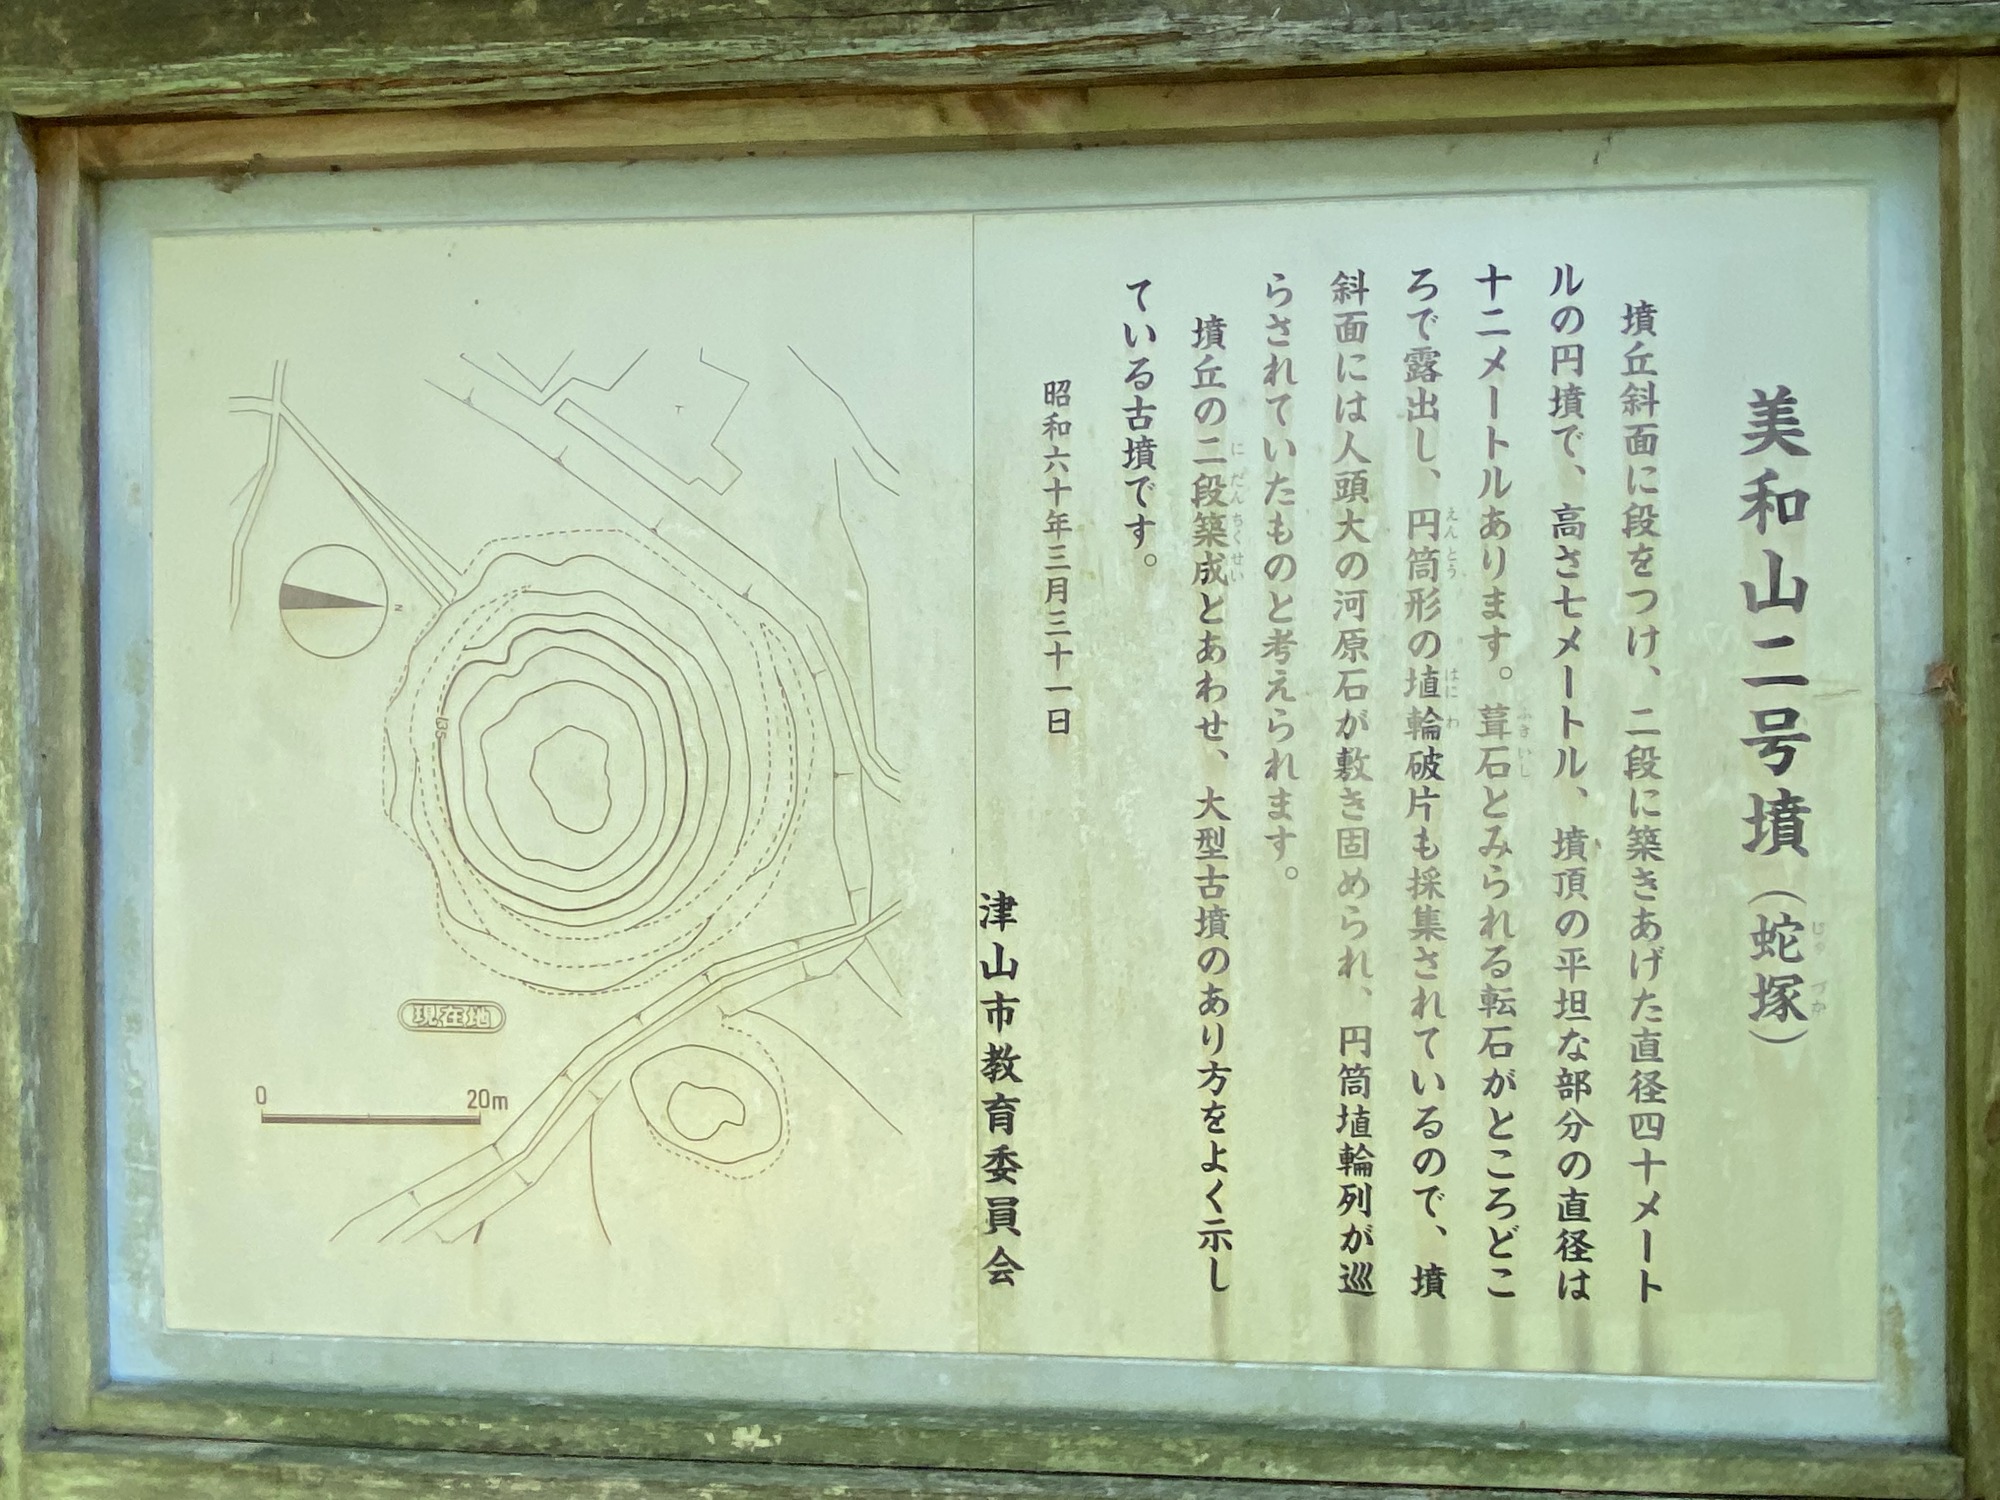 美和山二号墳（蛇塚）
じゃづか
墳丘斜面に段をつけ、二段に築きあげた直径四十メート
ルの円墳で、高さ七メートル、墳頂の平坦な部分の直径は
十二メートルあります。葺石とみられる転石がところどこ
ふきいし
ろで露出し、円筒形の埴輪破片も採集されているので、墳
えんとう
はにわ
斜面には人頭大の河原石が敷き固められ、円筒埴輪列が巡
らされていたものと考えられます。
墳丘の二段築成とあわせ、大型古墳のあり方をよく示し
にだんちくせい
ている古墳です。
昭和六十年三月三十一日
津山市教育委員会
N
135
現在地
0
20m